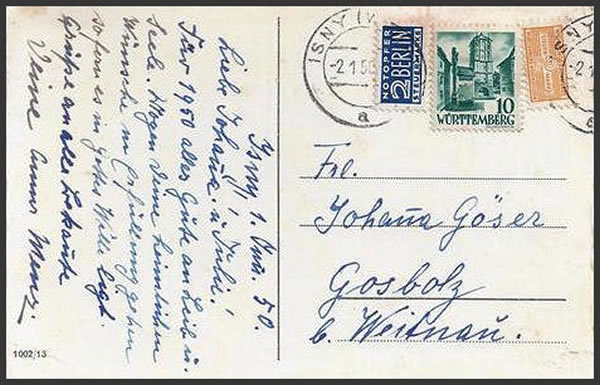 Isny, 1. Jan. 50.
Liebe Johana. u. Julie!
Für 1950 alles Gute an Leib u.
Seele. Mögen Deine heimlichen
Wünsche in Erfüllung gehen
sofern es in Gottes Wille liegt.
Grüße an alle Bekannte
Deine Anna
1002/13
ISNY (W
-2.1.50
a
NOTOPFER
2 BERLIN
STEUERMARKE
10
WÜRTTEMBERG
ISNY
-2.1
a
Frl.
Johana Göser
Gosbolz
b. Weitnau.